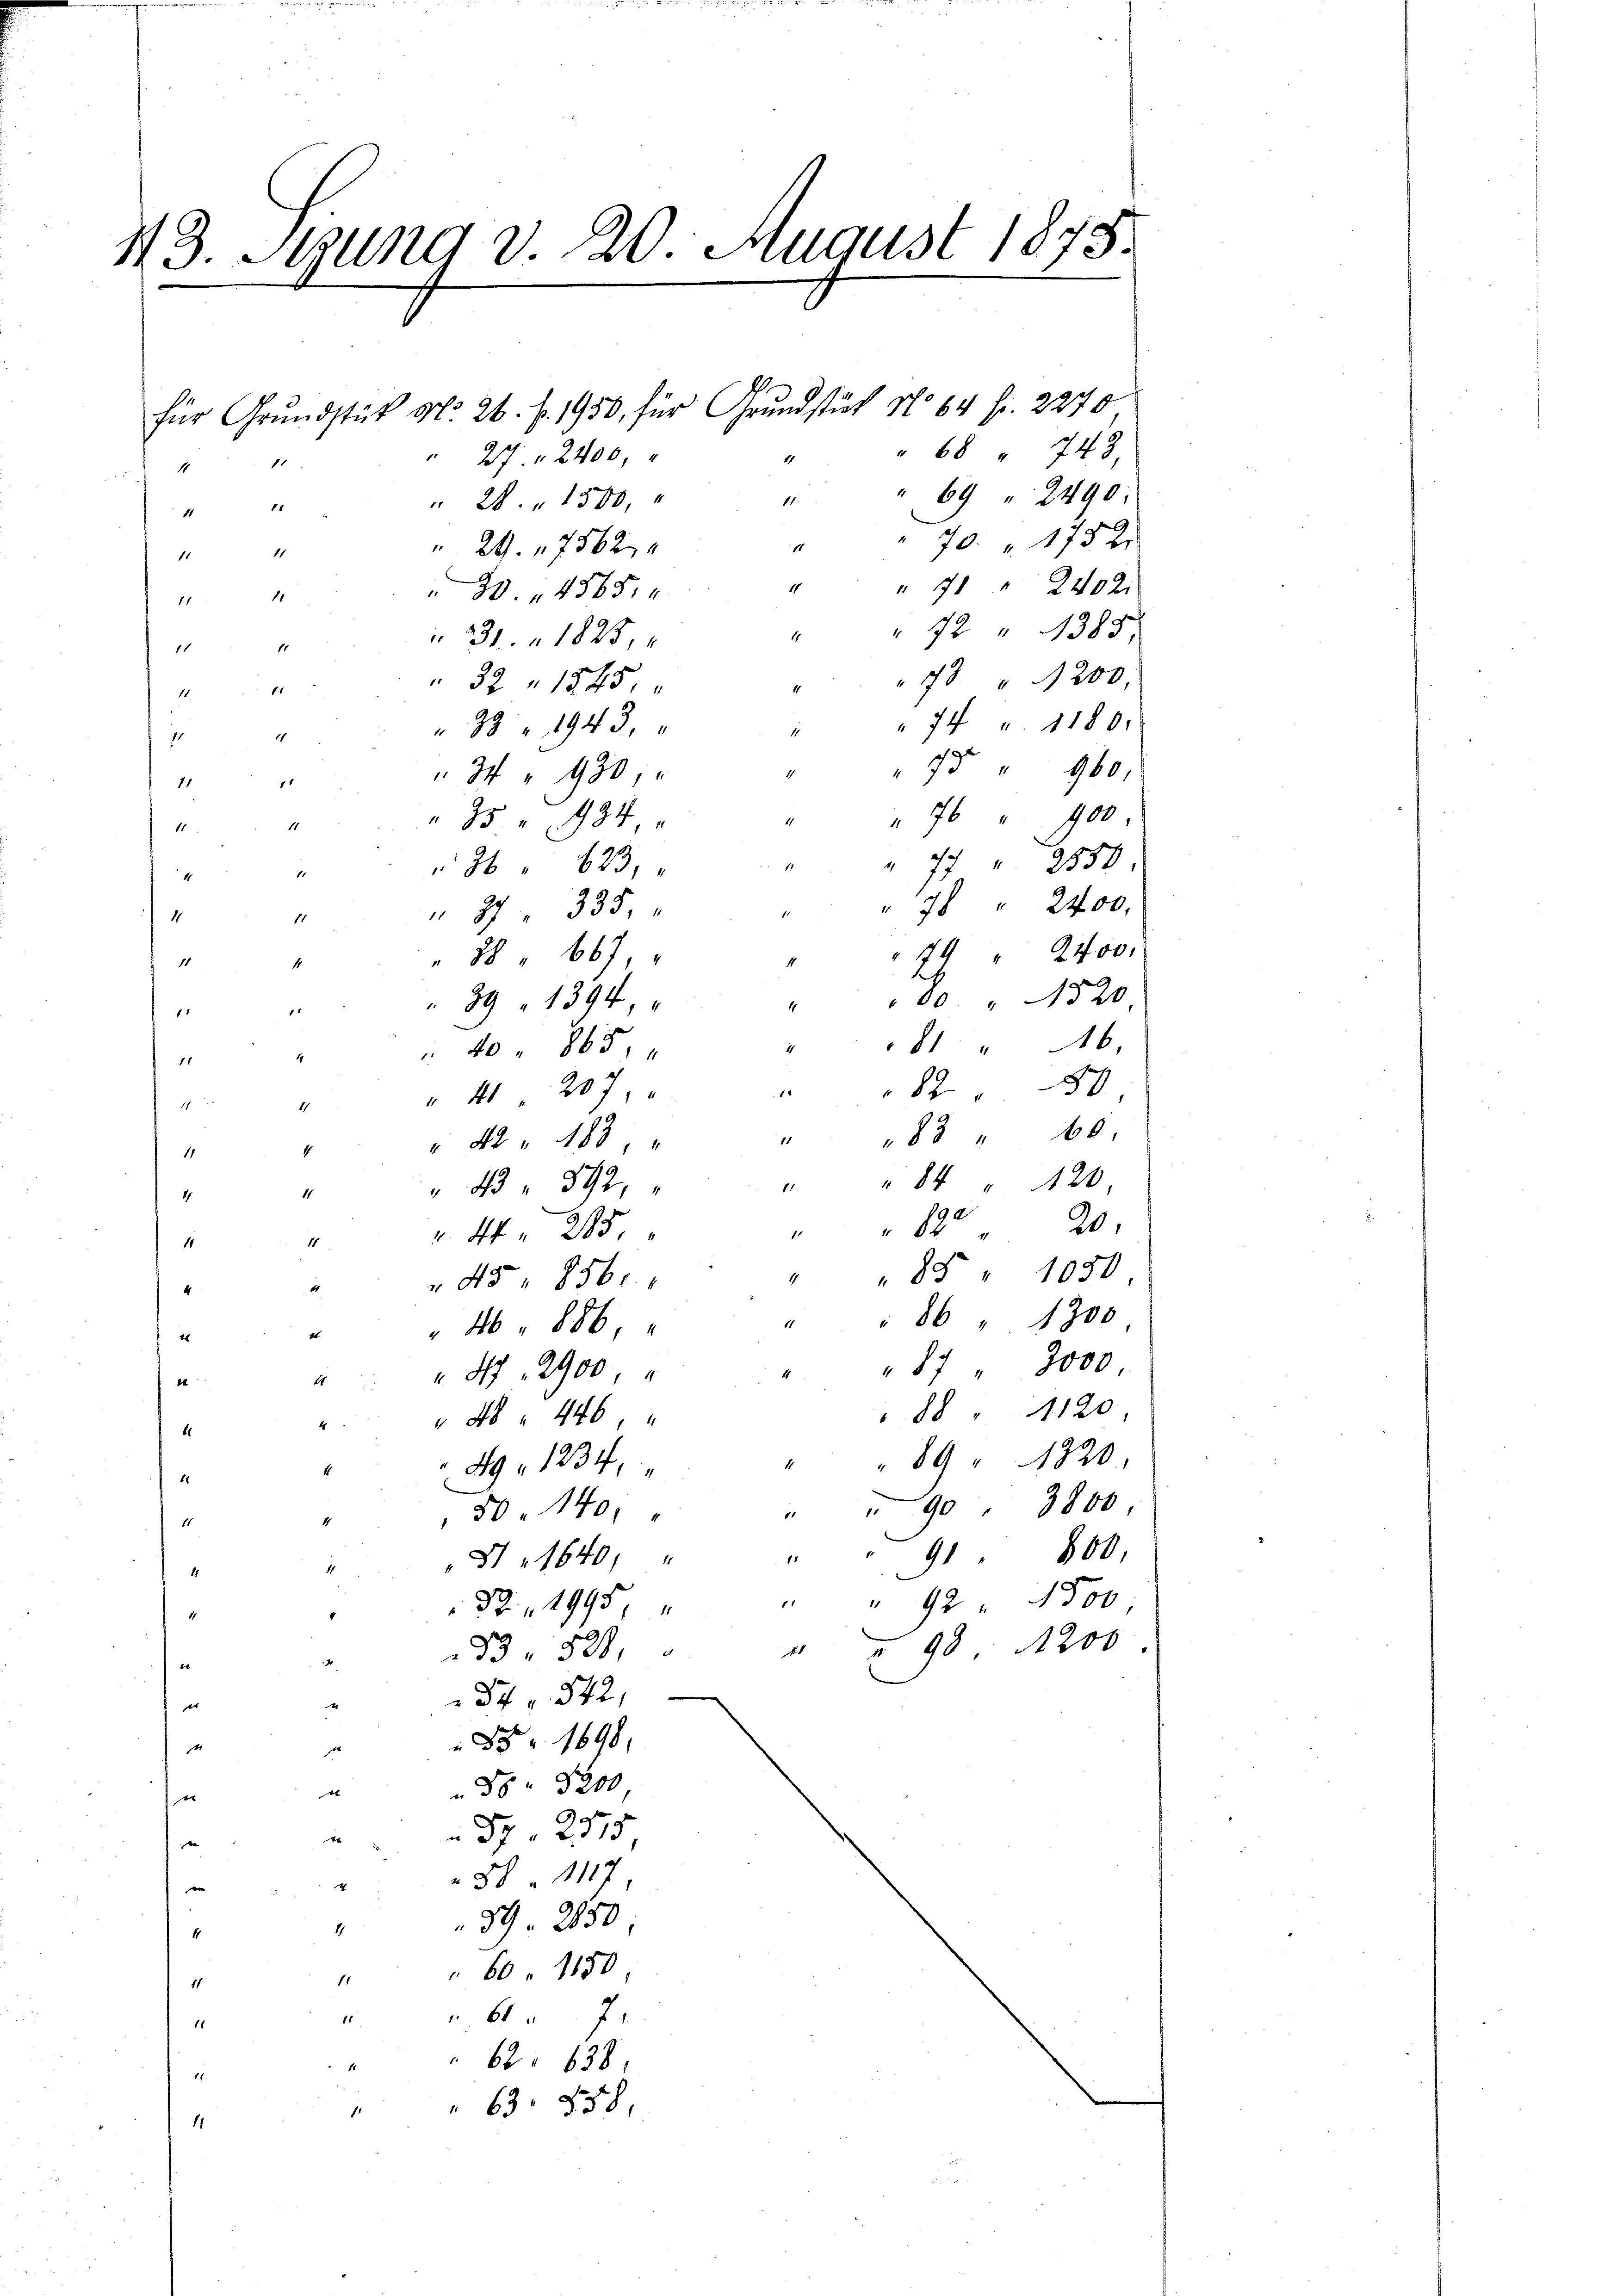 43. Sizung v. 20. August 1875.
für Grundstük No. 26. f. 1950, für Grundstük No 64 fr. 2270,
" " " 27. " 2400, " " " 68 " 743,
" " " 28. " 1500, " " " 69 " 2490,
" " " 29. " 7562, " " " 70. " 1752,
" " " 30. " 4565, " " " 71 " 2402,
" " " 31. " 1825, " " " 72 " 1385,
" " " 32 " 1545, " " " 73 " 1200,
" " " 33 " 1943, " " " 74 " 1180,
" " " 34 " 930, " " " 75 " 960,
" " " 35 " 934, " " " 76 " 900,
" " " 36 " 623, " " " 77 " 2550,
" " " 37 " 335, " " " 78 " 2400,
" " " 38 " 667, " " " 79 " 2400,
" " " 39 " 1394, " " " 80 " 1520,
" " " 40 " 865, " " " 81 " 16,
" " " 41 " 207, " " " 82 " 50,
" " " 42 " 183, " " " 83 " 60,
" " " 43 " 592, " " " 84 " 120,
" " " 44 " 285, " " " 82a " 20,
" " " 45 " 856, " " " 85 " 1050,
" " " 46 " 886, " " " 86 " 1300,
" " " 47 " 2900, " " " 87 " 3000,
" " " 48 " 446, " " 88 " 1120,
" " " 49 " 1234, " " " 89 " 1320,
" " " 50 " 140, " " " 90 " 3800,
" " " 51 " 1640, " " " 91 " 800,
" " " 52 " 1995, " " " 92 " 1500,
" " " 53 " 528, " " " 93 " 1200.
" " " 54 " 542,
" " " 55 " 1698,
" " " 56 " 5200,
" " " 57 " 2515,
" " " 58 " 1117,
" " " 59 " 2850,
" " " 60 " 1150,
" " " 61 " 7,
" " " 62 " 638,
" " " 63 " 558,